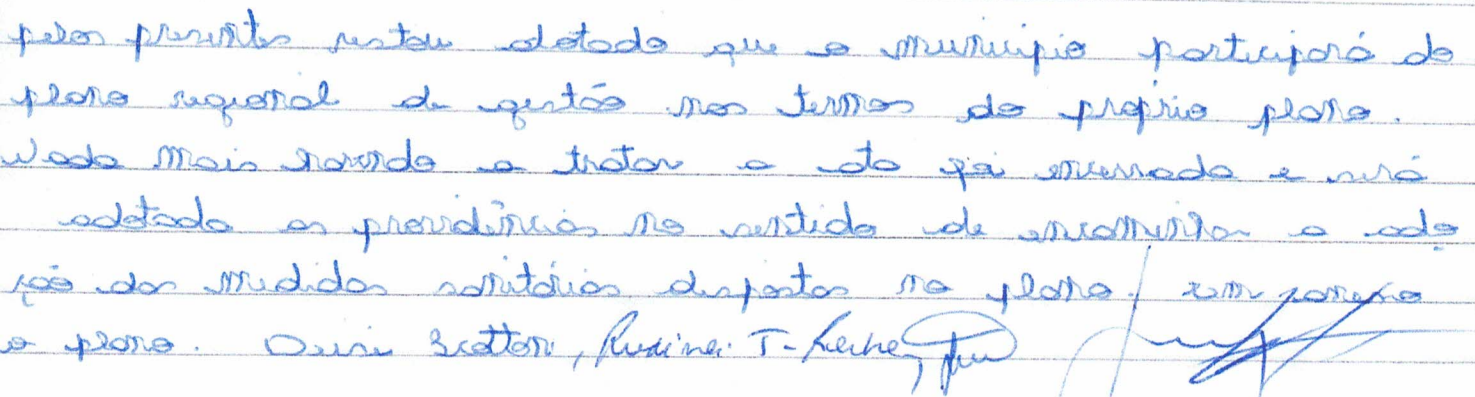 pelos presentes restou adotado que o município participará do
plano regional de gestão nos termos do próprio plano.
Nada mais havendo a tratar a ata foi encerrada e será
adotado as providências no sentido de encaminhar a ado
ção das medidas sanitárias dispostas no plano. em anexo
o plano. Deisi Scottoni,